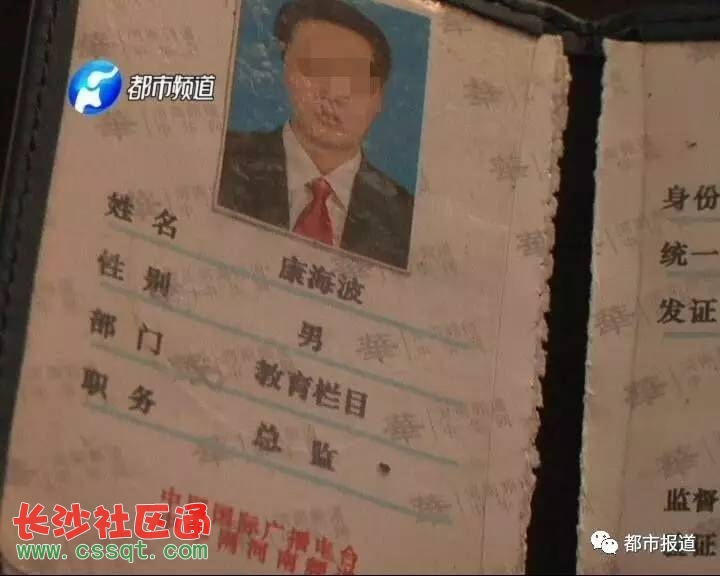 都市频道
姓名 康海波
性别 男
部门 教育栏目
职务 总监
中国国际广播电台
身份
统一
发证
监督
长沙社区通
www.cssqt.com
都市报道